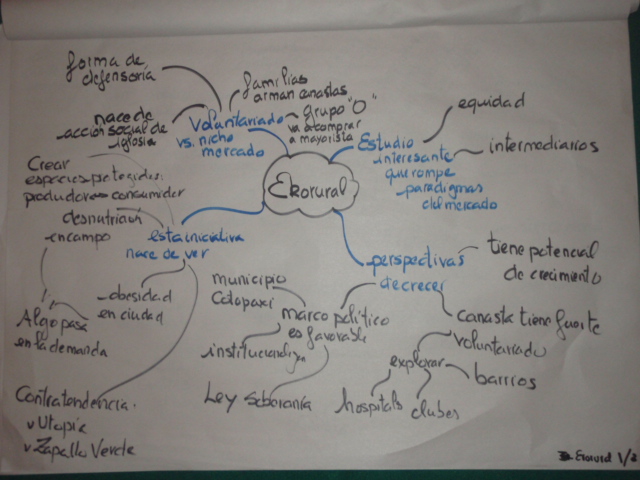 Ekorural
Voluntariado
vs. nicho
mercado
forma de
defensoría
nace de
acción social de
iglesia
familias
arman canastas
grupo "O"
va a comprar
a mayorista
Estudio
interesante
que rompe
paradigmas
del mercado
equidad
intermediarios
perspectivas
de crecer
tiene potencial
de crecimiento
canasta tiene fuerte
voluntariado
explorar
barrios
hospitals
clubes
marco político
es favorable
municipio
Cotopaxi
Ley Soberanía
esta iniciativa
nace de ver
Crear
espacios protegidos:
productores consumidor
desnutrición
en campo
Algo pasa
en la demanda
obesidad
en ciudad
Contratendencia.
Utopía
Zapallo Verde
1/2